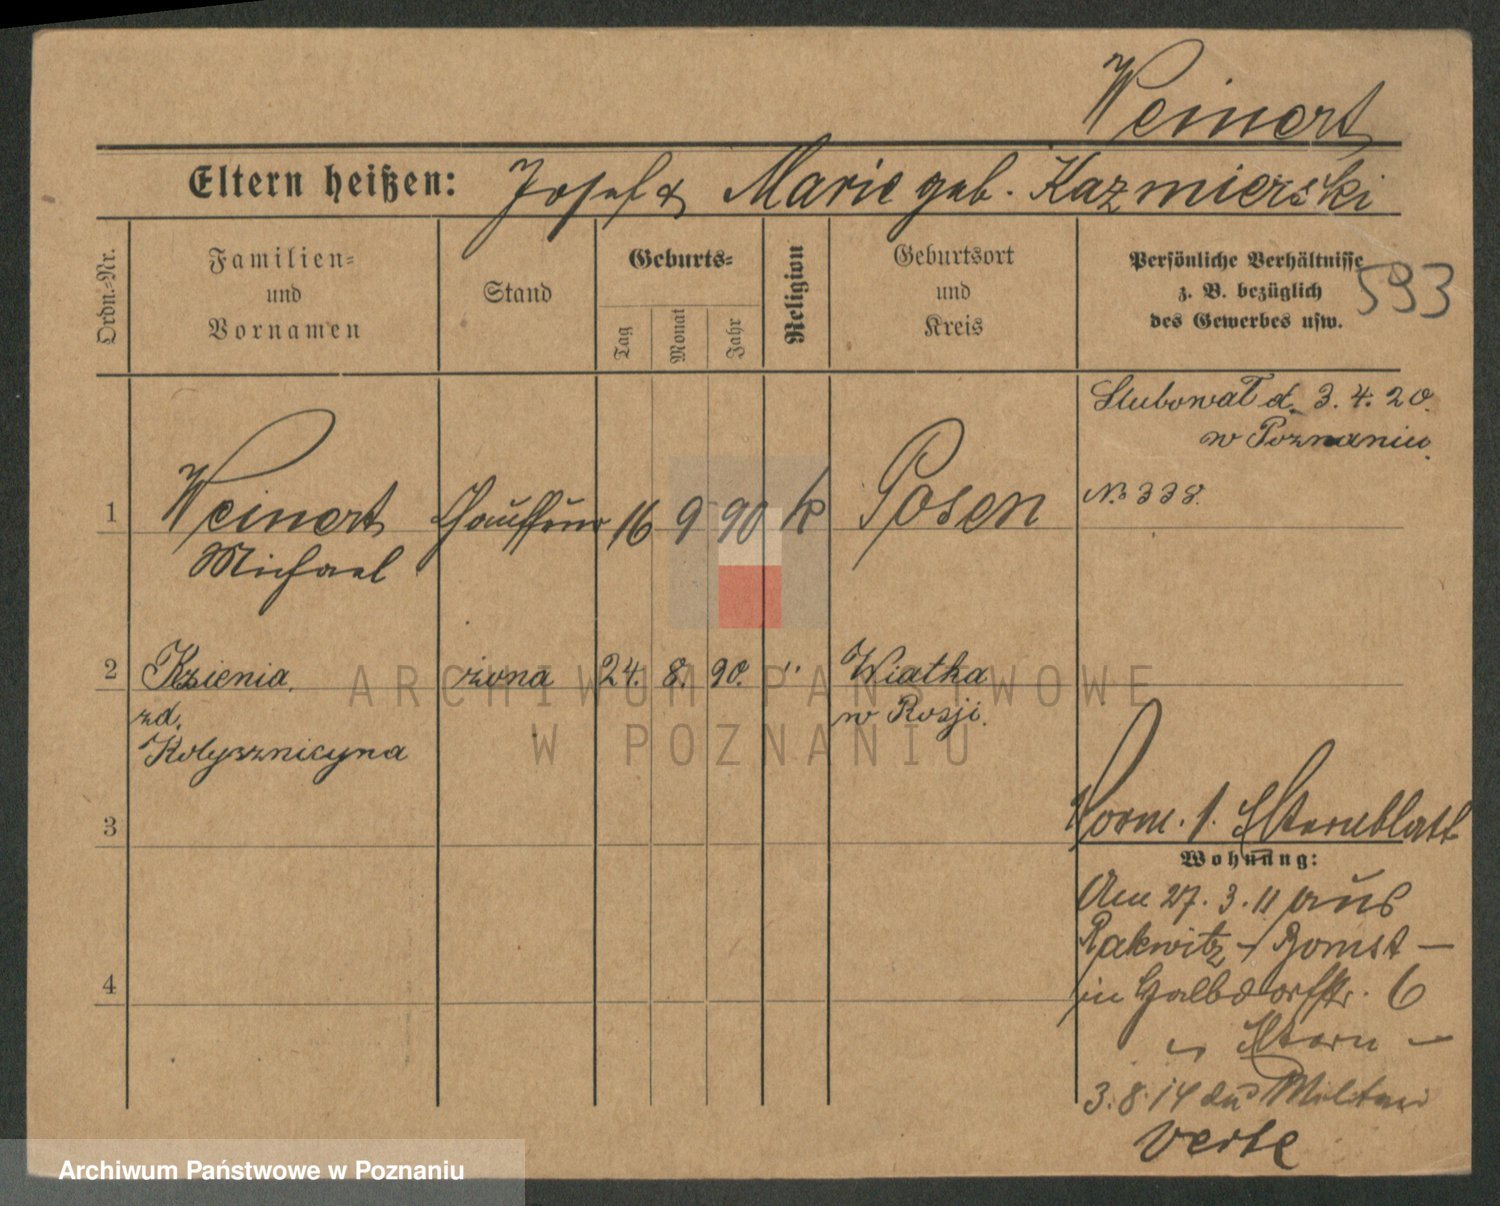 Weinert
Eltern heißen: Josef & Marie geb. Kazmierski
Ordn.-Nr.
Familien-
und
Vornamen
Stand
Geburts-
Tag
Monat
Jahr
Religion
Geburtsort
und
Kreis
Persönliche Verhältnisse
z. B. bezüglich
des Gewerbes usw.
593
Ślubował d. 3. 4. 20.
w Poznaniu.
№ 338.
1 Weinert Chauffeur 16 9 90 k Posen
Michael
2 Ksienia żona 24. 8. 90. " Wiatka
zd. w Rosji.
Kolysznicyna
3
Vorm. s. Elternblatt
Wohnung:
Am 27. 3. 11 aus
Rakwitz - Bomst -
4
in Halbdorfstr. 6
Eltern -
3. 8. 14 Militär
verte
ARCHIWUM PAŃSTWOWE
W POZNANIU
Archiwum Państwowe w Poznaniu